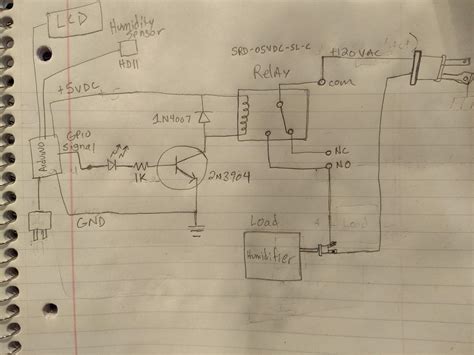 LCD
Humidity
Sensor
HD11
+5VDC
SRD-05VDC-SL-C
Relay
+120VAC
com
1N4007
Arduino
GPIO
Signal
1K
2N3904
NC
NO
GND
Load
Humidifier